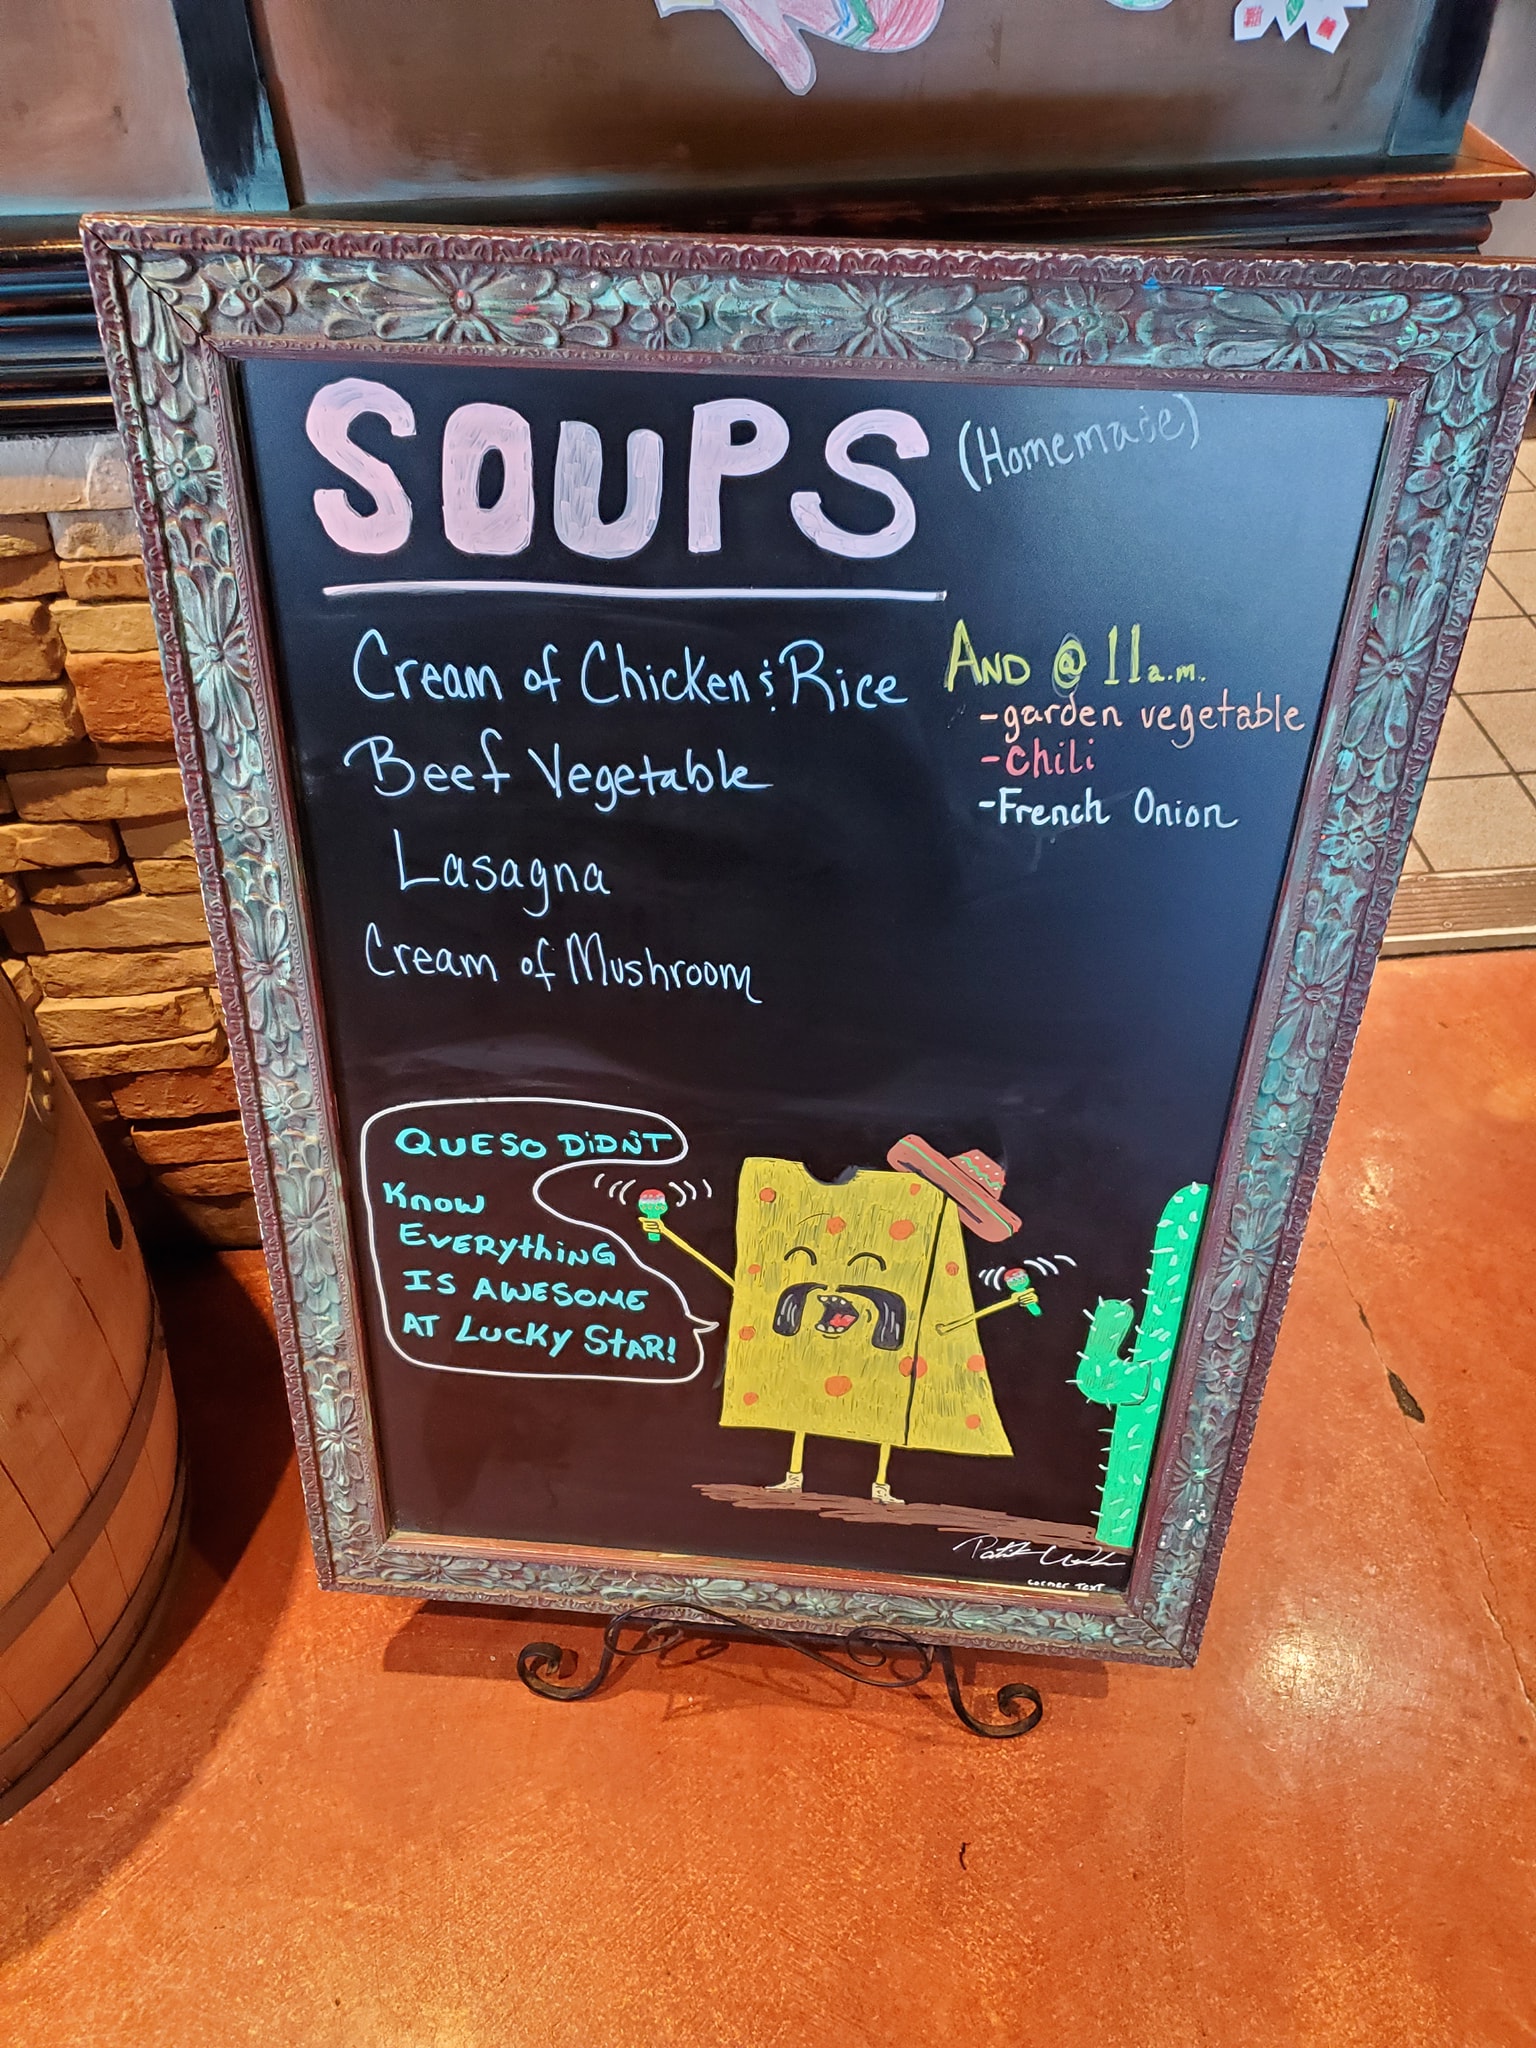 SOUPS (Homemade)
Cream of Chicken & Rice
Beef Vegetable
Lasagna
Cream of Mushroom
AND @ 11 a.m.
-garden vegetable
-chili
-French Onion
QUESO DiDN'T
Know
EVERYthiNG
IS AWESOME
AT LUCKY StAR!
corner text